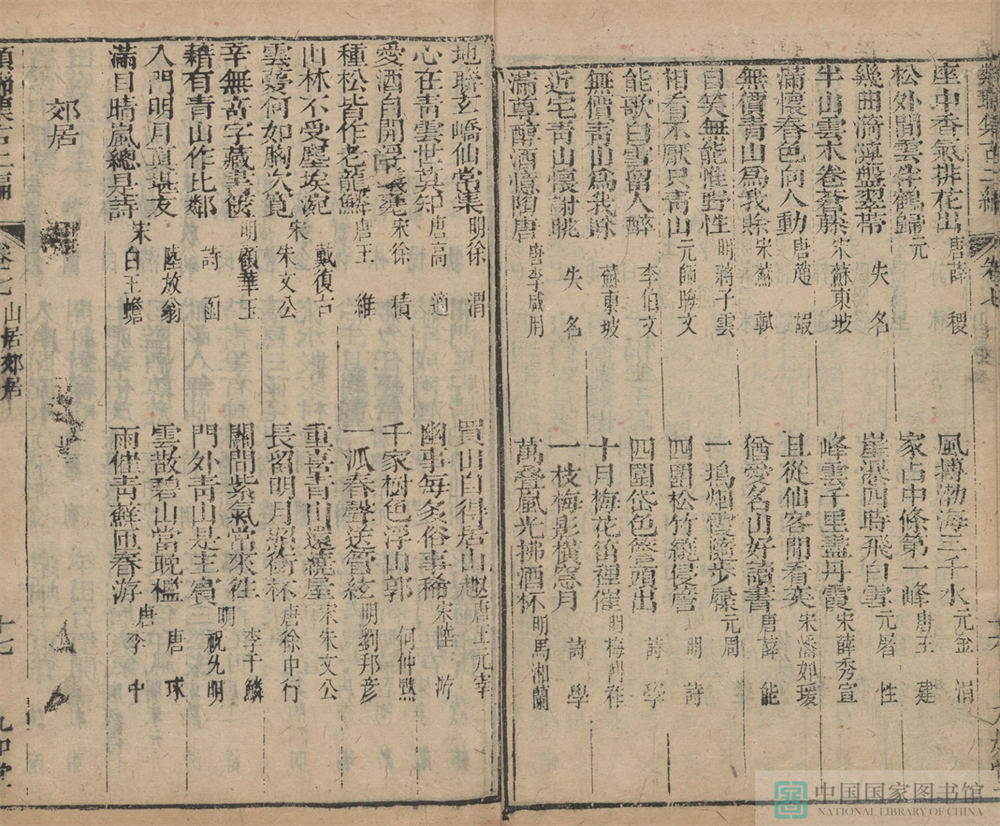 座中香氣排花出 唐薛 稷
風搏渤海三千水 元金 涓
松外閒雲伴鶴歸 元
家占中條第一峰 唐王 建
幾曲漪漣盤翠帶 失 名
崖瀑四時飛白雪 元屠 性
半山雲木卷蒼藤 宋蘇東坡
峰雲千里盡丹霞 宋薛秀宣
滿懷春色向人動 唐趙 嘏
且從仙客閒看奕 宋潘如瑗
無價青山爲我賒 宋蘇
猶愛名山好讀書 唐薛 能
自笑無能惟野性 明蔣子雲
一塢烟雲隨步屧 元周
相看不厭只青山 元師晦文
四圍松竹
能歌白雪留人醉 李伯文
四圍岱色
無價青山爲我 蘇東坡
十月梅花笛裡催
近宅青山懷謝眺 失 名
一枝梅影橫窓月 詩 學
滿尊醇酒憶陶唐 唐李咸用
萬叠嵐光拂酒杯 明馬湘蘭
地聯玄嶠仙常集 明徐 渭
買山自得居山趣 唐王元宰
心在青雲世莫知 唐高 適
幽事每多俗事稀 宋陸 游
愛酒自開浮 宋徐 積
千家樹色浮山郭 何仲默
種松皆作老龍鱗 唐王 維
一派春聲送管絃 明劉邦彦
山林不受塵埃涴 戴復古
重喜青山還繞屋 宋朱文公
雲夢何如胸次寬 宋朱文公
長留明月照銜杯 唐徐中行
幸無高字藏書 明顧華玉
關門紫氣常來往 李于鱗
藉有青山作比鄰 詩 函
門外青山是主賓 明祝允明
入門明月眞堪友 陸放翁
雲散碧山當晚檻 唐 球
滿目晴嵐總是詩 宋白玉蟾
雨催青蘚匝春游 唐李 中
郊居
卷七 山居郊居
十七